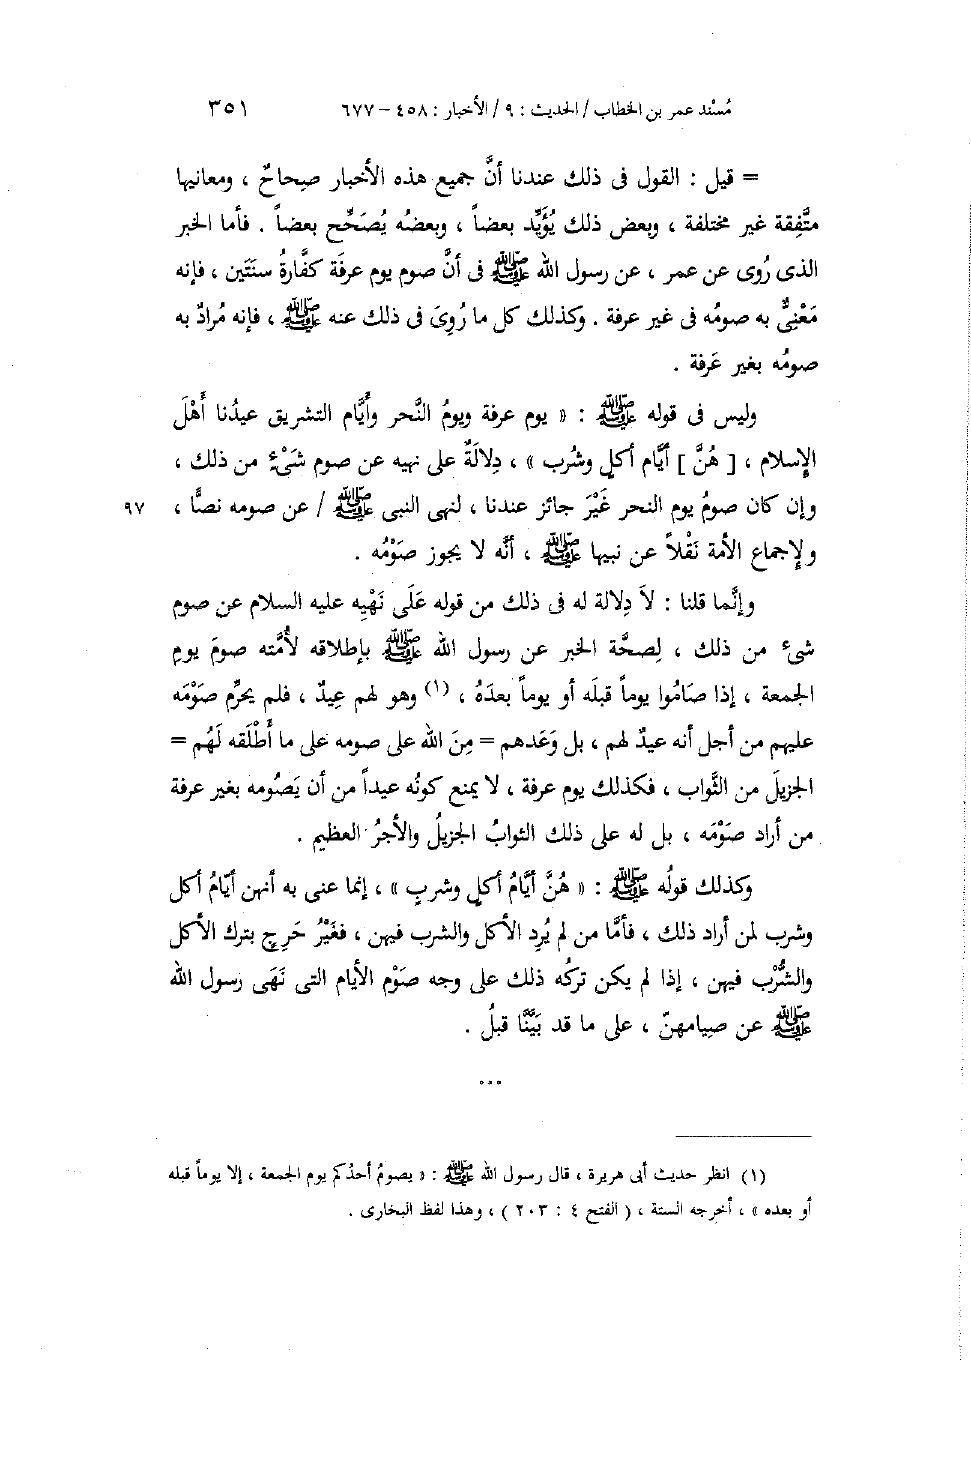 مُسْند عمر بن الخطاب / الحديث : ٩ / الأخبار : ٤٥٨ – ٦٧٧ ٣٥١
= قيل : القول فى ذلك عندنا أنَّ جميع هذه الأخبار صِحاحٌ ، ومعانيها
متَّفِقة غير مختلفة ، وبعض ذلك يُؤَيِّد بعضاً ، وبعضُه يُصَحِّح بعضاً . فأما الخبر
الذى رُوى عن عمر ، عن رسول الله ﷺ فى أنَّ صوم يوم عرفَة كفَّارةُ سنَتَين ، فإنه
مَعْنِيٌّ به صومُه فى غير عرفة . وكذلك كل ما رُوِىَ فى ذلك عنه ﷺ ، فإنه مُرادٌ به
صومُه بغير عَرفة .
وليس فى قوله ﷺ : « يوم عرفة ويومُ النَّحر وأَيَّام التشريق عيدُنا أَهْلَ
الإِسلام ، [ هُنَّ ] أَيَّام أكلٍ وشُرب » ، دِلالَةٌ على نهيه عن صوم شَىْءٍ من ذلك ،
وإن كان صومُ يوم النحر غَيْرَ جائز عندنا ، لنهى النبى ﷺ / عن صومه نصًّا ، ٩٧
ولإجماع الأمة نَقْلاً عن نبيها ﷺ ، أنَّه لا يجوز صَوْمُه .
وإنَّما قلنا : لاَ دِلالة له فى ذلك من قوله عَلَى نَهْيِه عليه السلام عن صوم
شىء من ذلك ، لِصحَّة الخبر عن رسول الله ﷺ بإطلاقه لأُمَّته صومَ يومِ
الجمعة ، إذا صَامُوا يوماً قبلَه أو يوماً بعدَهُ ، (١) وهو لهم عِيدٌ ، فلم يحرِّم صَوْمَه
عليهم من أجل أنه عيدٌ لهم ، بل وَعَدهم = مِنَ الله على صومه على ما أَطْلَقه لَهُم =
الجزيلَ من الثَّواب ، فكذلك يوم عرفة ، لا يمنع كونُه عيداً من أن يَصُومه بغير عرفة
من أراد صَوْمَه ، بل له على ذلك الثوابُ الجزيلُ والأجرُ العظيم .
وكذلك قولُه ﷺ : « هُنَّ أيَّامُ أكلٍ وشربٍ » ، إنما عنى به أنهن أيّامُ أكل
وشرب لمن أراد ذلك ، فأمَّا من لم يُرِد الأكل والشرب فيهن ، فغَيْرُ حَرِجٍ بترك الأكل
والشُّرْب فيهن ، إذا لم يكن تركُه ذلك على وجه صَوْم الأيام التى نَهَى رسول الله
ﷺ عن صيامهنّ ، على ما قد بَيَّنَّا قبلُ .
...
(١) انظر حديث أبى هريرة ، قال رسول الله ﷺ : « يصومُ أحدُكم يوم الجمعة ، إلا يوماً قبله
أو بعده » ، أخرجه الستة ، ( الفتح ٤ : ٢٠٣ ) ، وهذا لفظ البخارى .